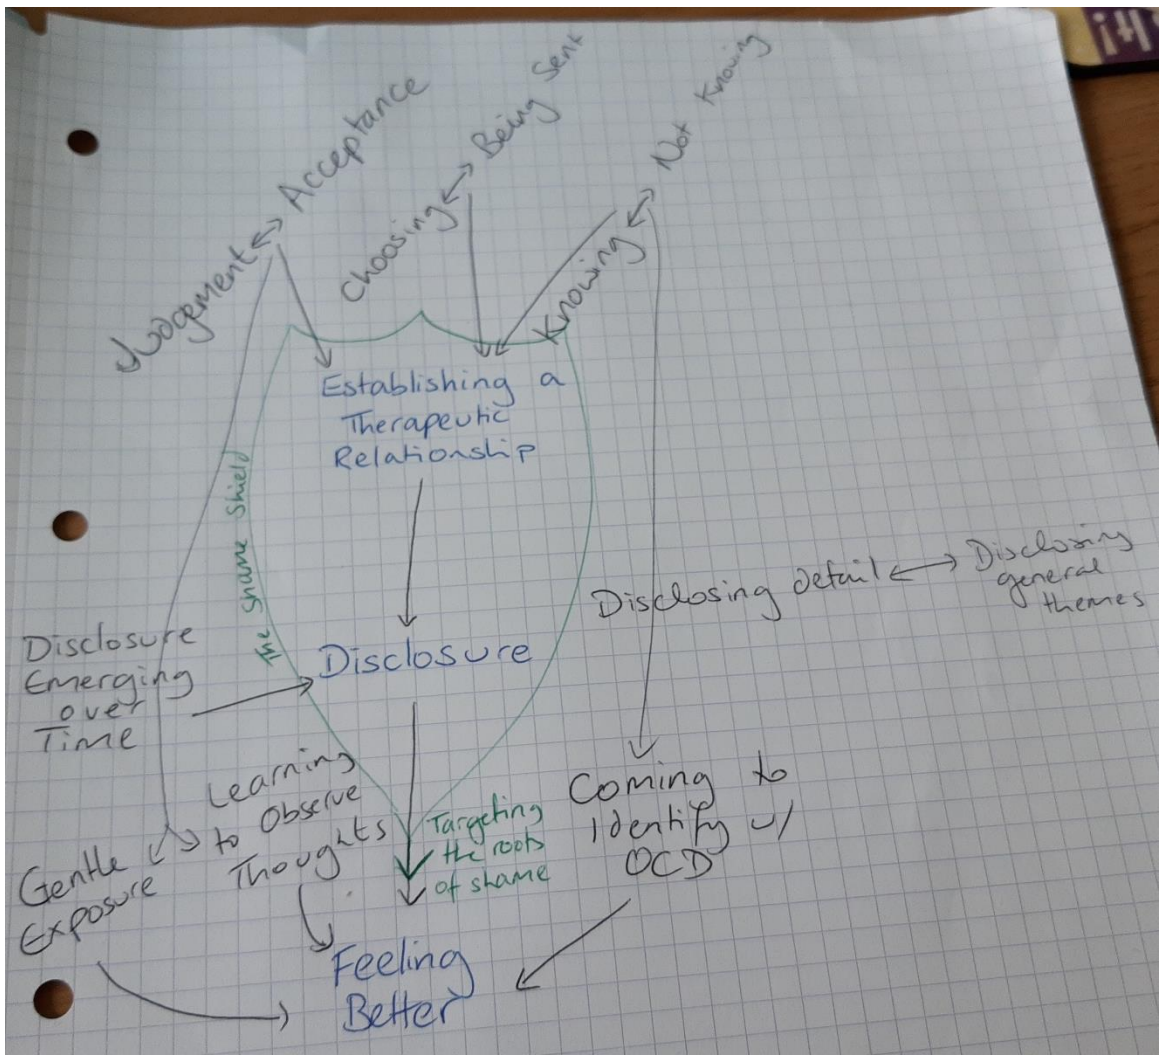 Judgement ↔ Acceptance
Choosing ↔ Being Sent
Knowing ↔ Not Knowing
Establishing a
Therapeutic
Relationship
The Shame Shield
Disclosing detail ↔ Disclosing
general
themes
Disclosure
Emerging
over
Time
Disclosure
Learning
to Observe
Thoughts
Targeting
the roots
of shame
Coming to
Identify w/
OCD
Gentle
Exposure
Feeling
Better